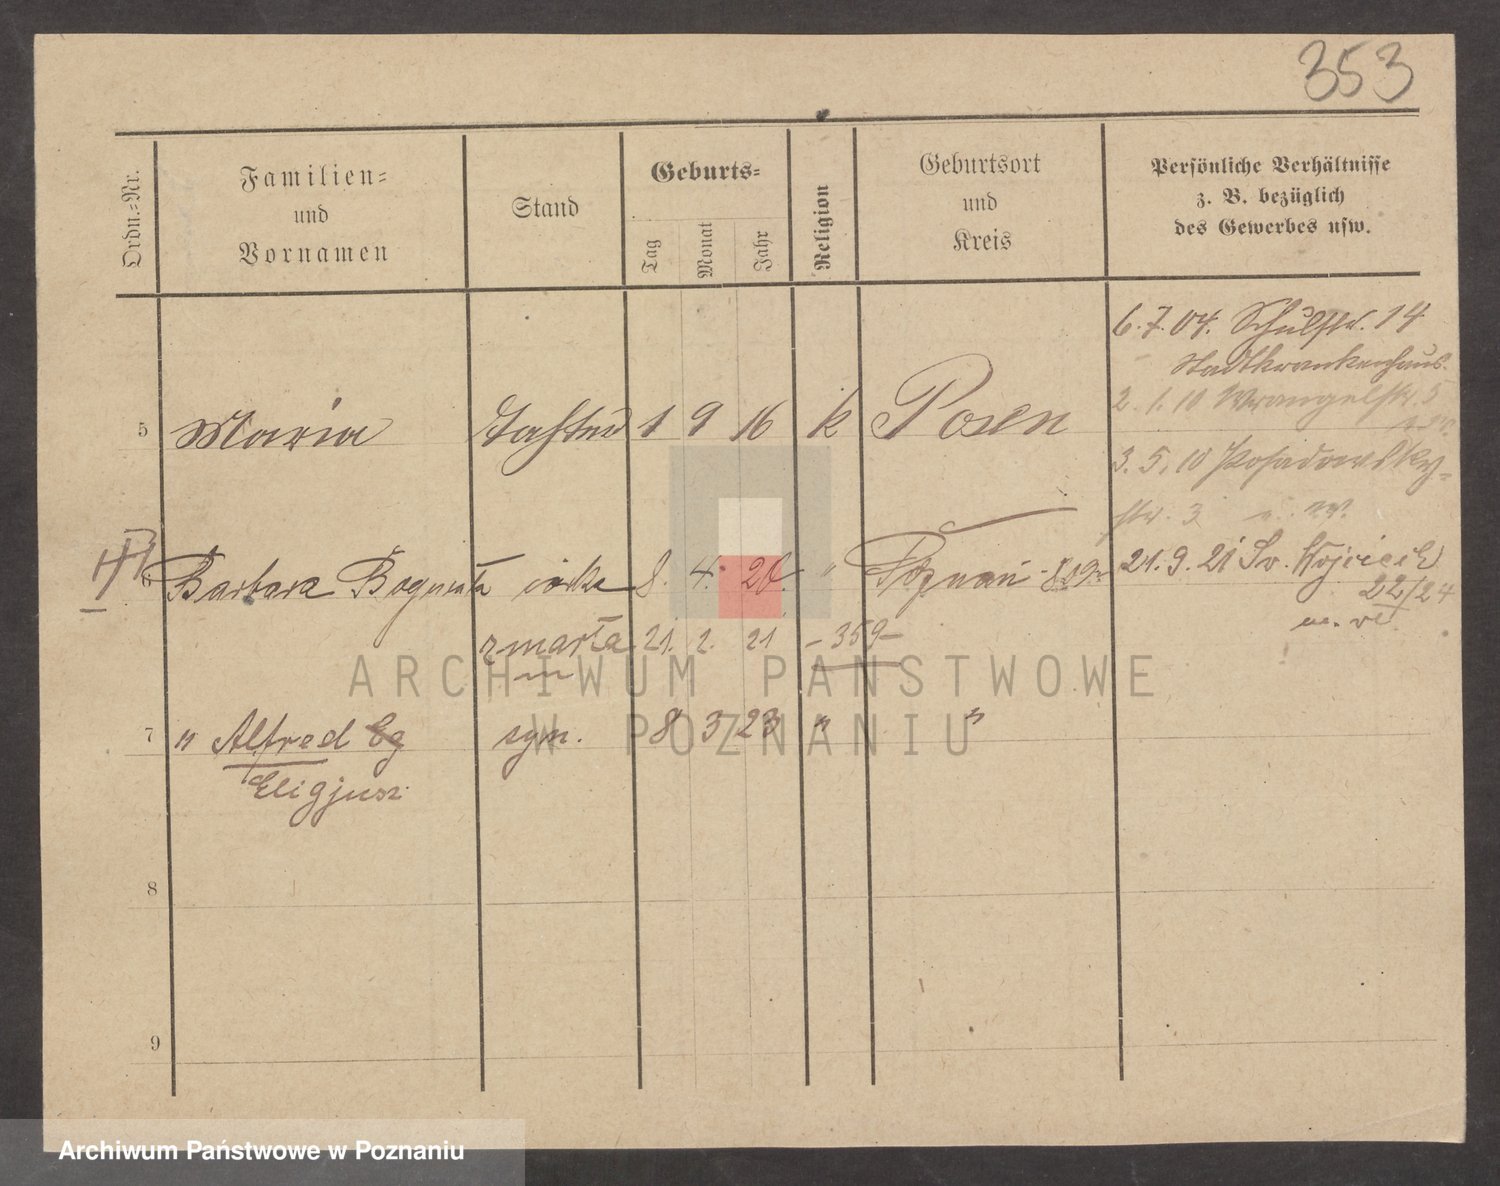 353
Ordn.-Nr.
Familien-
und
Vornamen
Stand
Geburts-
Tag
Monat
Jahr
Religion
Geburtsort
und
Kreis
Persönliche Verhältnisse
z. B. bezüglich
des Gewerbes usw.
6.7.04. Schulstr. 14
Stadtkrankenhaus.
2.1.10 Wrangelstr. 5
5 Maria Tochter 1 9 16 k Posen
3.5.10 Posadowsky-
str. 3
6 Barbara Bogumiła córka 8. 4. 20. " Poznań
21.9.21 Św. Wojciech
22/24
zmarła 21. 2. 21 - 359 -
7 " Alfred Eg syn. 8 3 23 " "
Eligjusz
8
9
ARCHIWUM PAŃSTWOWE
W POZNANIU
Archiwum Państwowe w Poznaniu